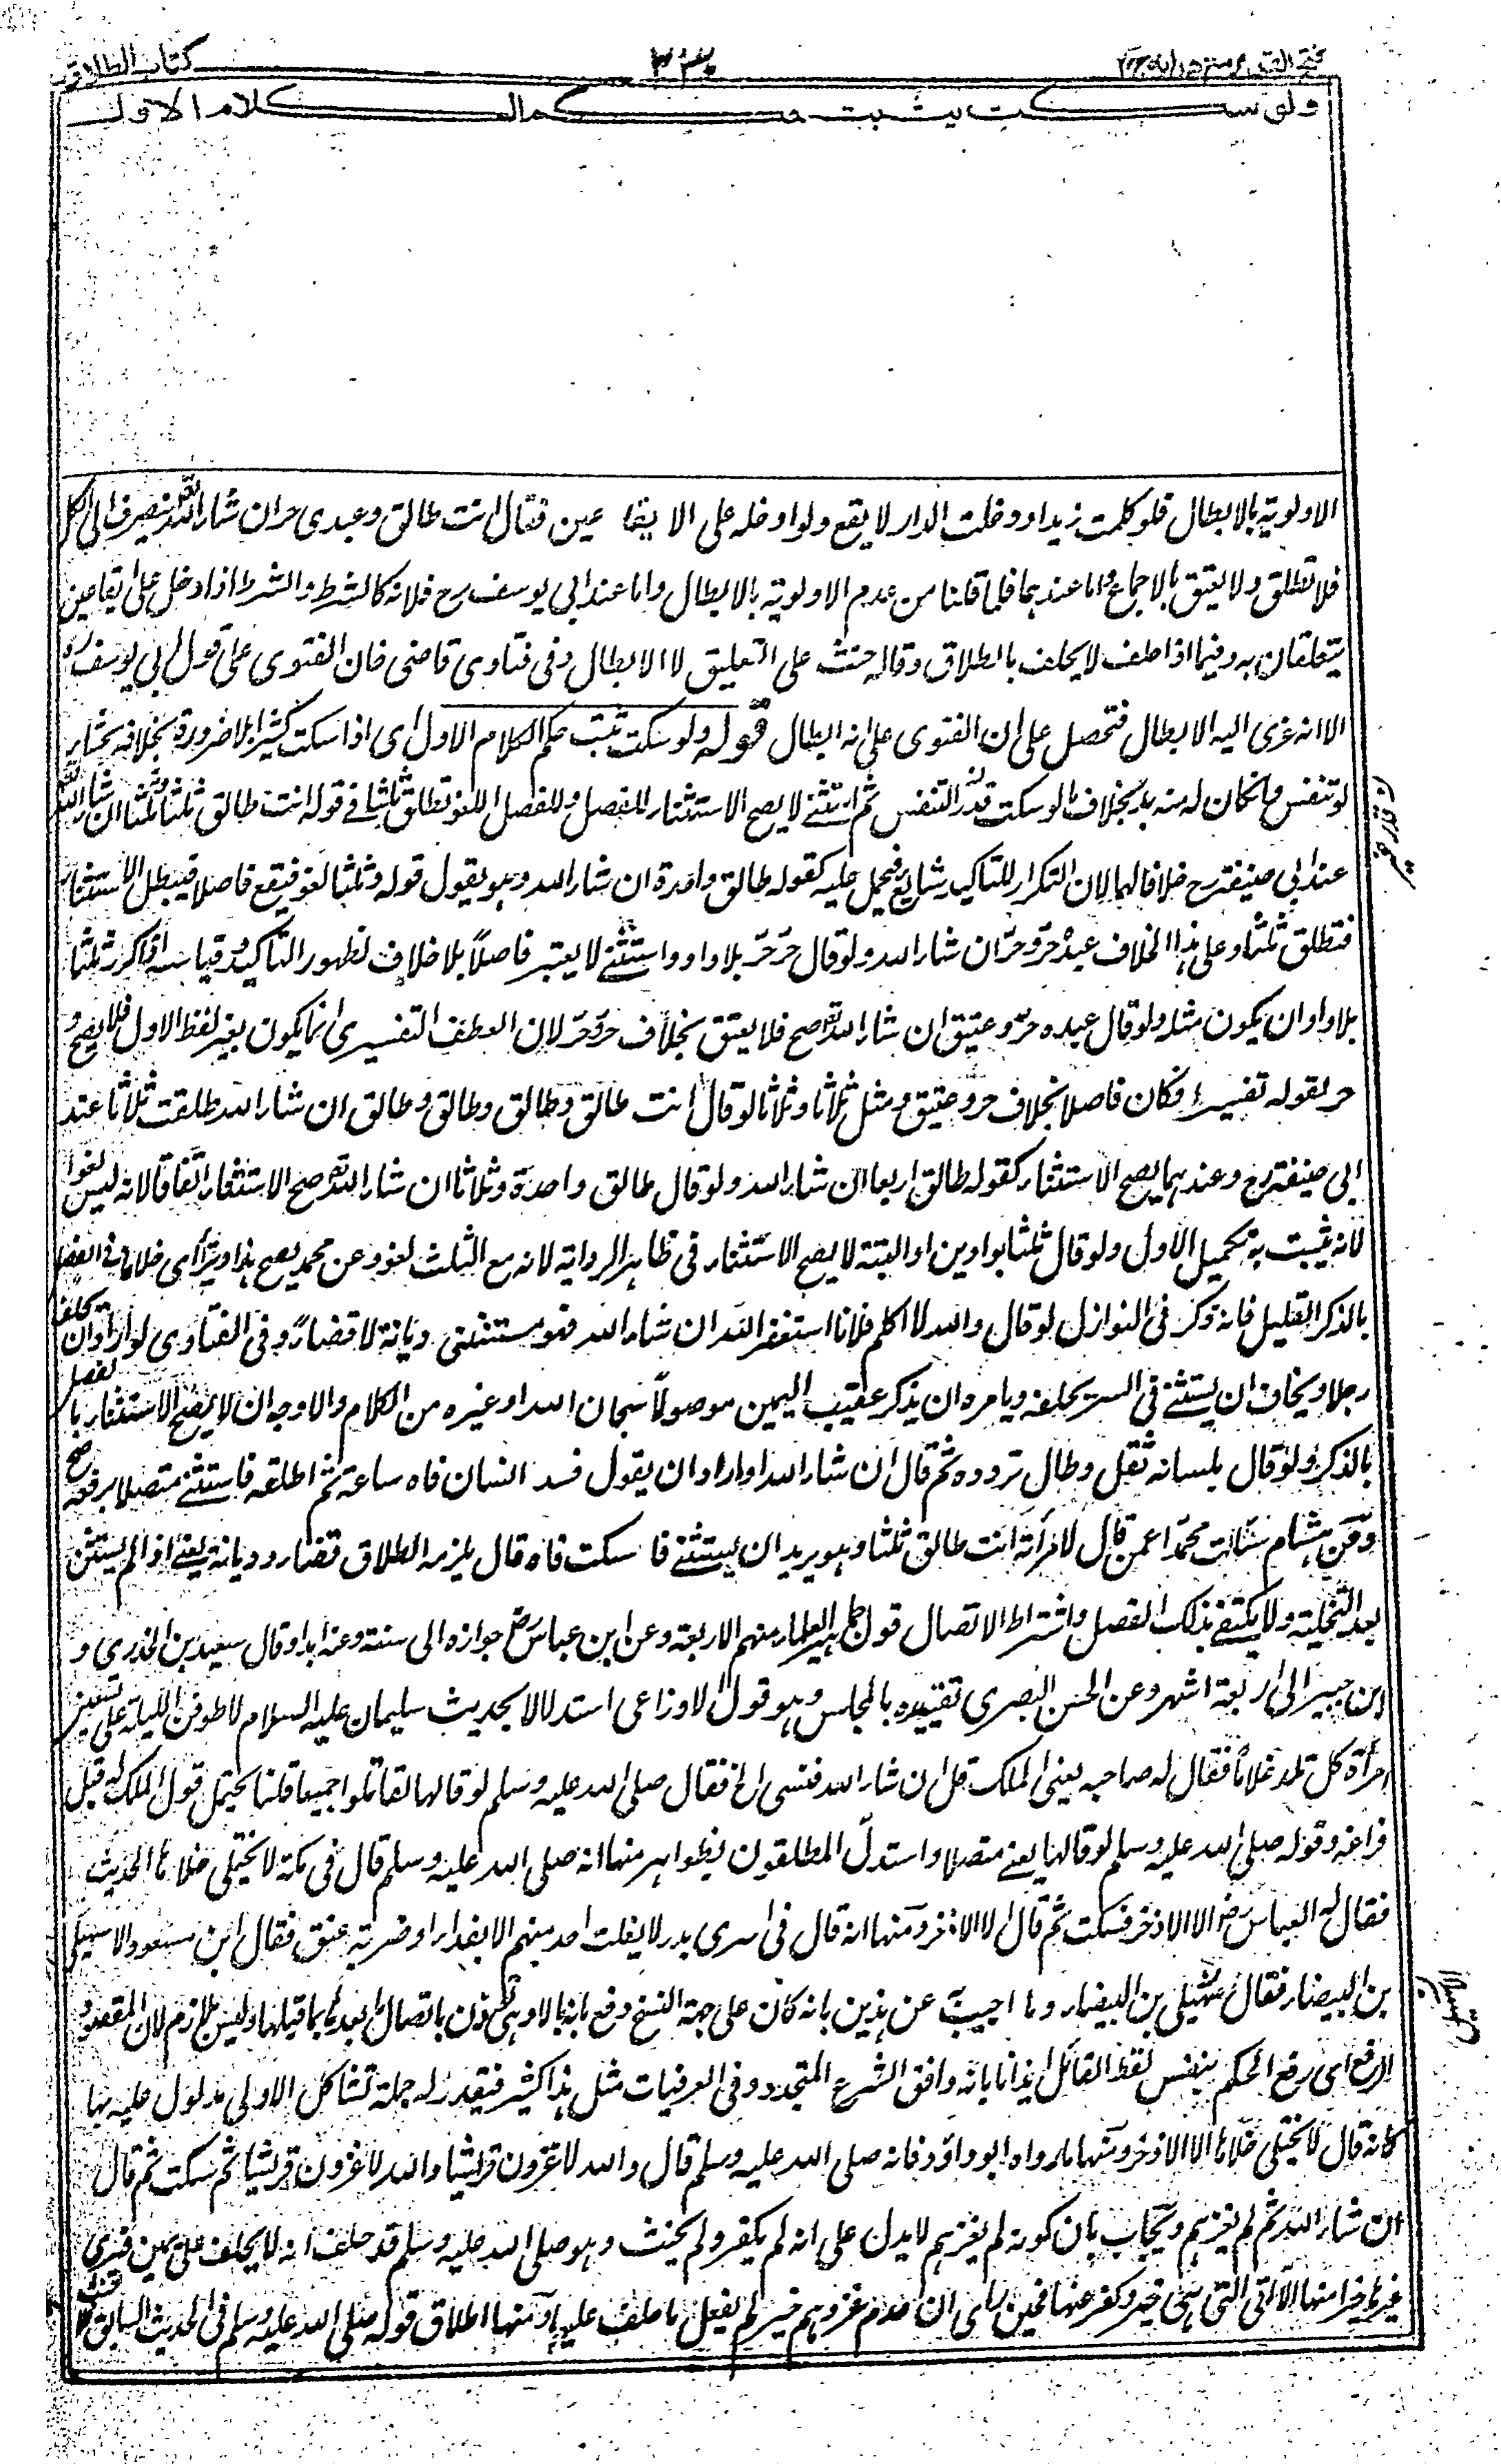 كتاب الطلاق
ولو سكت يثبت حكم الكلام الاول
الاولوية بالابطال فلو كلمت زيدا او دخلت الدار لا يقع ولو ادخله على الايقاعين فقال انت طالق وعبدى حر ان شاء الله ينصرف الى الكل
فلا تطلق ولا يعتق بالاجماع واما عندهما فلما قلنا من عدم الاولوية بالابطال واما عند ابي يوسف رح فلانه كالشرط والشرط اذا دخل على ايقاعين
يتعلقان به وفيما اذا حلف لا يحلف بالطلاق وقاله حنث على التعليق لا الابطال وفى فتاوى قاضى خان الفتوى على قول ابي يوسف رح
الا انه عزى اليه الابطال فتحصل على ان الفتوى على انه ابطال قوله ولو سكت ثبت حكم الكلام الاول اى اذا سكت كثيرا بلا ضرورة بخلافه بجشاء
لو تنفس وان كان له منه بد بخلاف ما لو سكت قدر التنفس ثم استثنى لا يصح الاستثناء للفصل وللفصل اللغو تطلق ثلثا فى قوله انت طالق ثلثا وثلثا ان شاء الله
عند ابي حنيفة رح خلافا لهما لان التكرار للتاكيد شايع فيحمل عليه كقوله طالق واحدة ان شاء الله وهو يقول قوله وثلثا لغو فيقع فاصلا فيبطل الاستثناء
فتطلق ثلثا وعلى هذا الخلاف عبده حر وحر ان شاء الله ولو قال حر حر بلا واو واستثنى لا يعتبر فاصلاً بلا خلاف لظهور التاكيد وقياسه اذا كرر ثلثا
بلا واو ان يكون مثله ولو قال عبده حر وعتيق ان شاء الله تع صح فلا يعتق بخلاف حر وحر لان العطف التفسيرى انما يكون بغير لفظ الاول فلا يصح و
حر لقوله تفسيرا فكان فاصلا بخلاف حر وعتيق ومثل ثلاثا وثلاثا لو قال انت طالق وطالق وطالق وطالق ان شاء الله طلقت ثلاثا عند
ابى حنيفة رح وعندهما يصح الاستثناء كقوله طالق اربعا ان شاء الله ولو قال طالق واحدة وثلاثا ان شاء الله تع صح الاستثناء اتفاقا لانه ليس لغوا
لانه يثبت به تكميل الاول ولو قال ثلثا بوائن او البتة لا يصح الاستثناء فى ظاهر الرواية لانه مع الثلث لغو وعن محمد يصح هذا ويتراأى خلاف فى الفصل
بالذكر القليل فانه ذكر فى النوازل لو قال والله لا اكلم فلانا استغفر الله ان شاء الله فهو مستثنى ديانة لا قضاء وفى الفتاوى لو اراد ان يحلف
رجلا ويخاف ان يستثنى فى السر يحلفه ويامره ان يذكر عقيب اليمين موصولاً سبحان الله او غيره من الكلام والاوجه ان لا يصح الاستثناء بالفصل
بالذكر ولو قال بلسانه ثقل وطال تردده ثم قال ان شاء الله او اراد ان يقول فسد انسان فاه ساعة ثم اطلقه فاستثنى متصلا برفعه صح
وعن هشام سالت محمدا عمن قال لامرأته انت طالق ثلثا وهو يريد ان يستثنى فامسكت فاه قال يلزمه الطلاق قضاء وديانة يعنى اذا لم يستثن
بعد التخلية ولا يكتفى بذلك الفصل واشتراط الاتصال قول جماهير العلماء منهم الاربعة وعن ابن عباس رض جوازه الى سنة وعنه ابدا وقال سعيد بن الخدرى و
ابن جبير الى اربعة اشهر وعن الحسن البصرى تقييده بالمجلس وهو قول الاوزاعى استدلالا بحديث سليمان عليه السلام لاطوفن الليلة على تسعين
امرأة كل تلد غلاماً فقال له صاحبه يعنى الملك قل ان شاء الله فنسى الخ فقال صلى الله عليه وسلم لو قالها لقاتلوا جميعا قلنا يحتمل قول الملك له قبل
فراغه وقوله صلى الله عليه وسلم لو قالها يعنى متصلا واستدل المطلقون بظواهر منها انه صلى الله عليه وسلم قال فى مكة لا يختلى خلاها الحديث
فقال له العباس رض الا الاذخر فسكت ثم قال الا الاذخر ومنها انه قال فى اسرى بدر لا يفلت احد منهم الا بفداء او ضربة عنق فقال ابن مسعود الا سهيل
بن البيضاء فقال الا سهيل بن البيضاء وما اجيب عن هذين بانه كان على جهة النسخ دفع بانه بالا وهى تؤذن باتصال ما بعدها بما قبلها وليس بلازم لان المقصود
الرفع اى رفع الحكم بنفس لفظ القائل ايذانا بانه وافق الشرع المتجدد وفى العرفيات مثل هذا كثير فيقدر له جملة تشاكل الاولى مدلول عليه بها
كانه قال لا يختلى خلاها الا الاذخر ومنها ما رواه ابو داؤد فانه صلى الله عليه وسلم قال والله لاغزون قريشا والله لاغزون قريشا ثم سكت ثم قال
ان شاء الله ثم لم يغزهم ويجاب بان كونه لم يغزهم لا يدل على انه لم يكفر ولم يحنث وهو صلى الله عليه وسلم قد حلف انه لا يحلف على يمين فيرى
غيرها خيرا منها الا اتى التى هى خير وكفر عنها فحين راى ان عدم غزوهم خير لم يفعل ما حلف عليه ومنها اطلاق قوله صلى الله عليه وسلم فى الحديث السابق